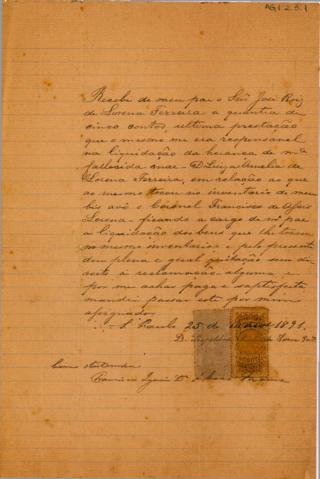 AG1.2.5.1
Recebi de meu pae o Snr. José Roiz
de Lorena Ferreira a quantia de
cinco contos, ultima prestação
que o mesmo me era responsavel
na liquidação da herança de mª
fallecida mãe D.
Lorena Ferreira, em relação ao que
ao mesmo tocou no inventario de meu
bis avô o Coronel Francisco de Assis
Lorena - ficando a cargo de mº pae
a liquidação dos bens que lhe
no mesmo inventario; e pelo presente
dou plena e geral quitação sem di-
reito á reclamação alguma, e
por me achar paga e satisfeita
mandei passar este por mim
assignado.
S. Paulo 25 de 1891.
D.
Como
Francisco